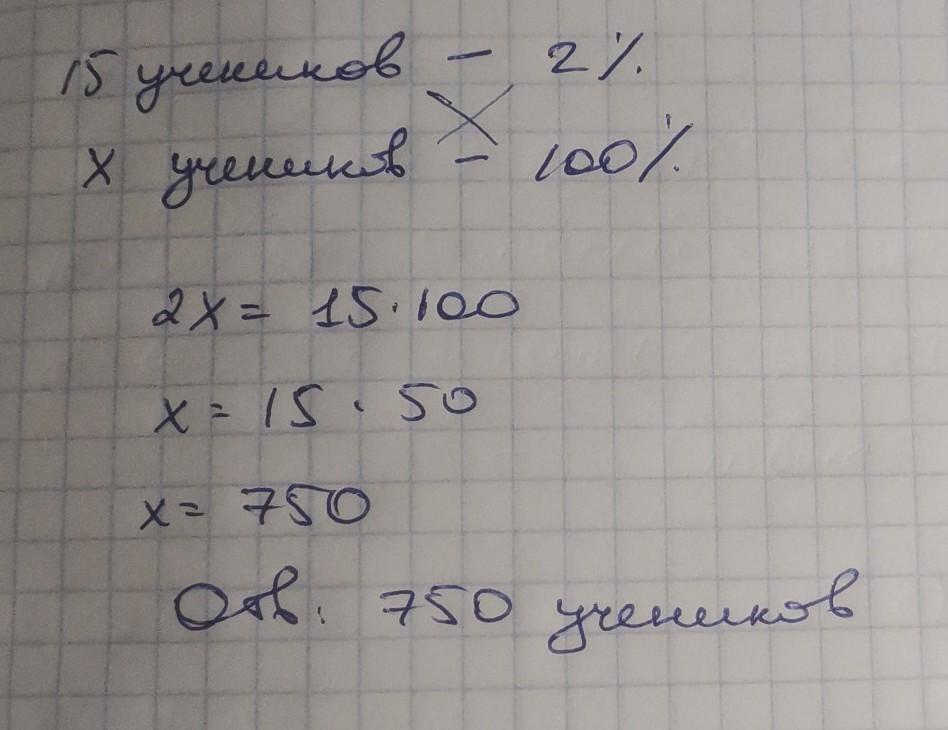 15 учеников – 2%.
х учеников – 100%.
2х = 15·100
х = 15 · 50
х = 750
Отв: 750 учеников